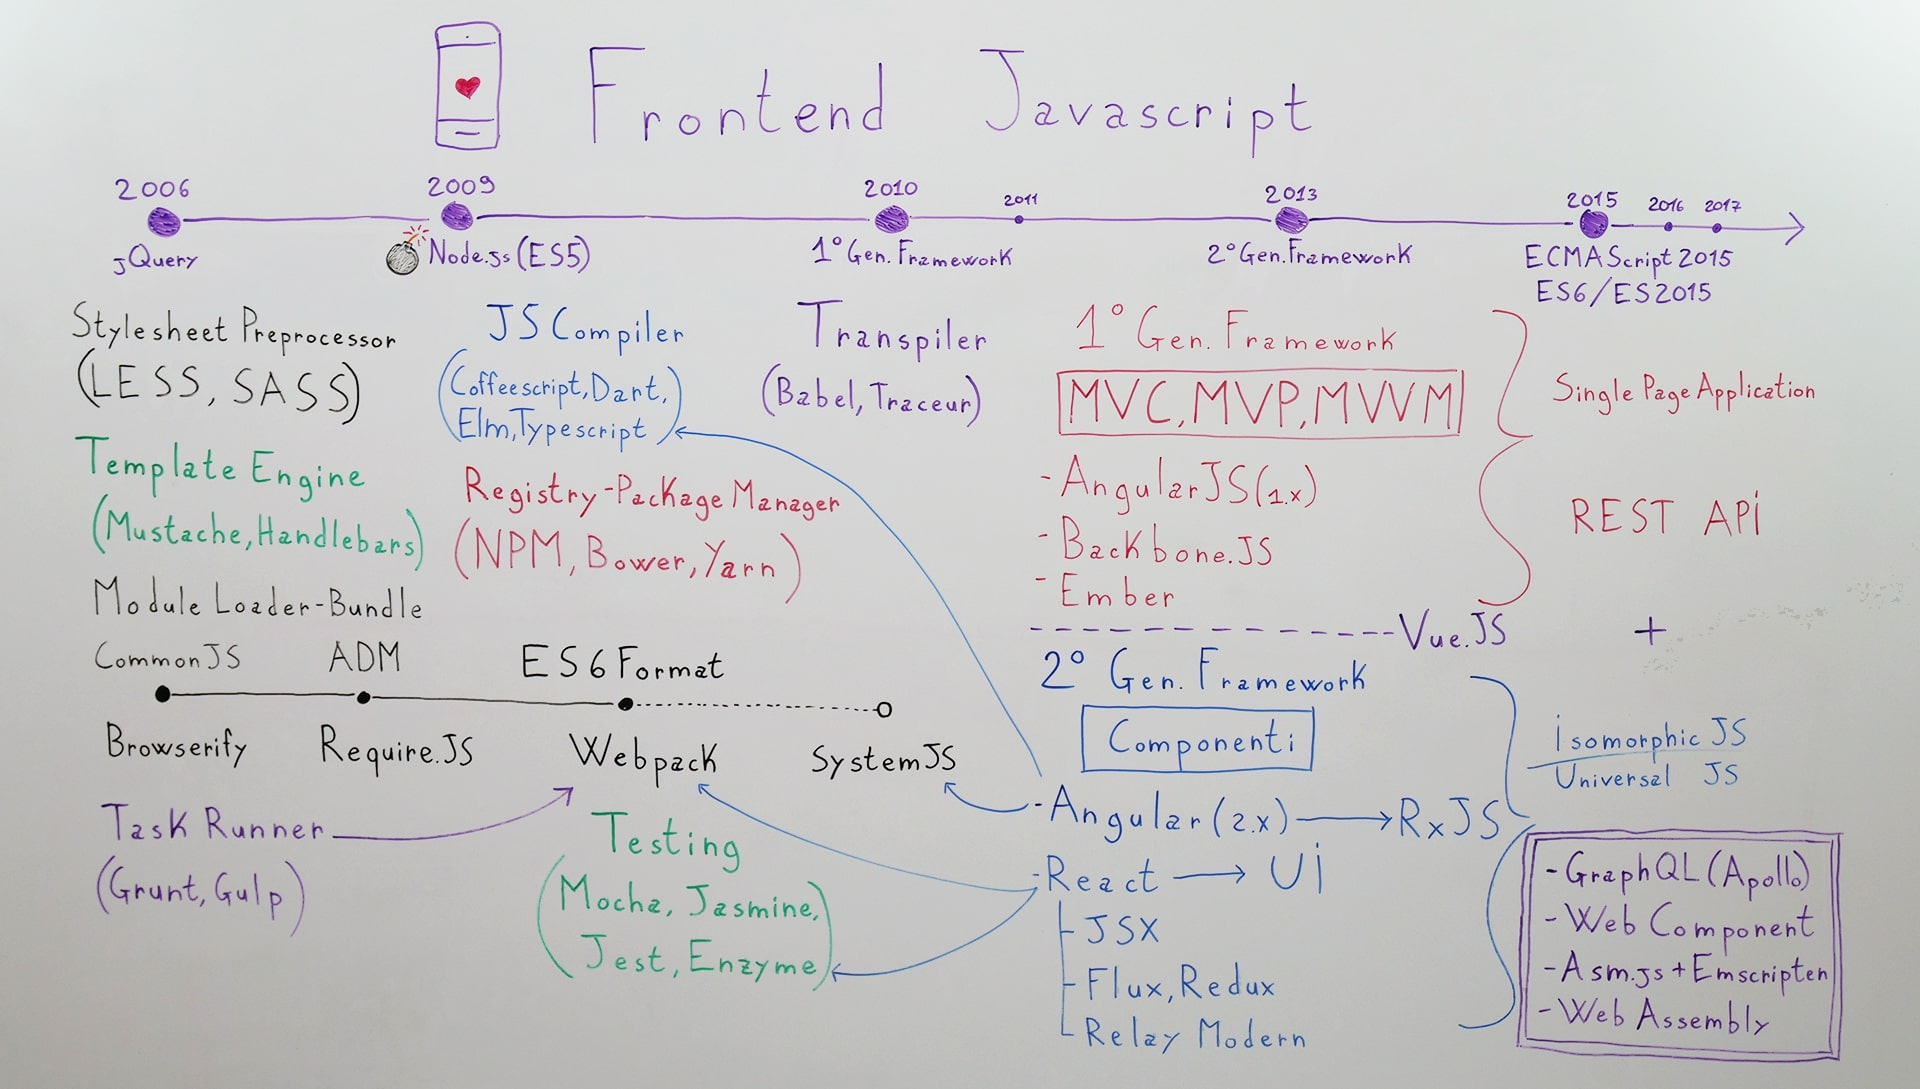 Frontend Javascript
2006
2009
2010
2011
2013
2015
2016
2017
jQuery
Node.js (ES5)
1° Gen. Framework
2° Gen. Framework
ECMAScript 2015
ES6/ES2015
Stylesheet Preprocessor
(LESS, SASS)
Template Engine
(Mustache, Handlebars)
JS Compiler
(Coffeescript, Dart,
Elm, Typescript)
Transpiler
(Babel, Traceur)
Registry-Package Manager
(NPM, Bower, Yarn)
Module Loader-Bundle
CommonJS
ADM
ES6 Format
Browserify
Require.JS
Webpack
SystemJS
Task Runner
(Grunt, Gulp)
Testing
(Mocha, Jasmine,
Jest, Enzyme)
1° Gen. Framework
MVC, MVP, MVVM
- AngularJS (1.x)
- Backbone.JS
- Ember
Vue.JS
2° Gen. Framework
Componenti
- Angular (2.x) → RxJS
- React → Ui
JSX
Flux, Redux
Relay Modern
Single Page Application
REST APi
+
isomorphic JS
Universal JS
- GraphQL (Apollo)
- Web Component
- Asm.js + Emscripten
- Web Assembly